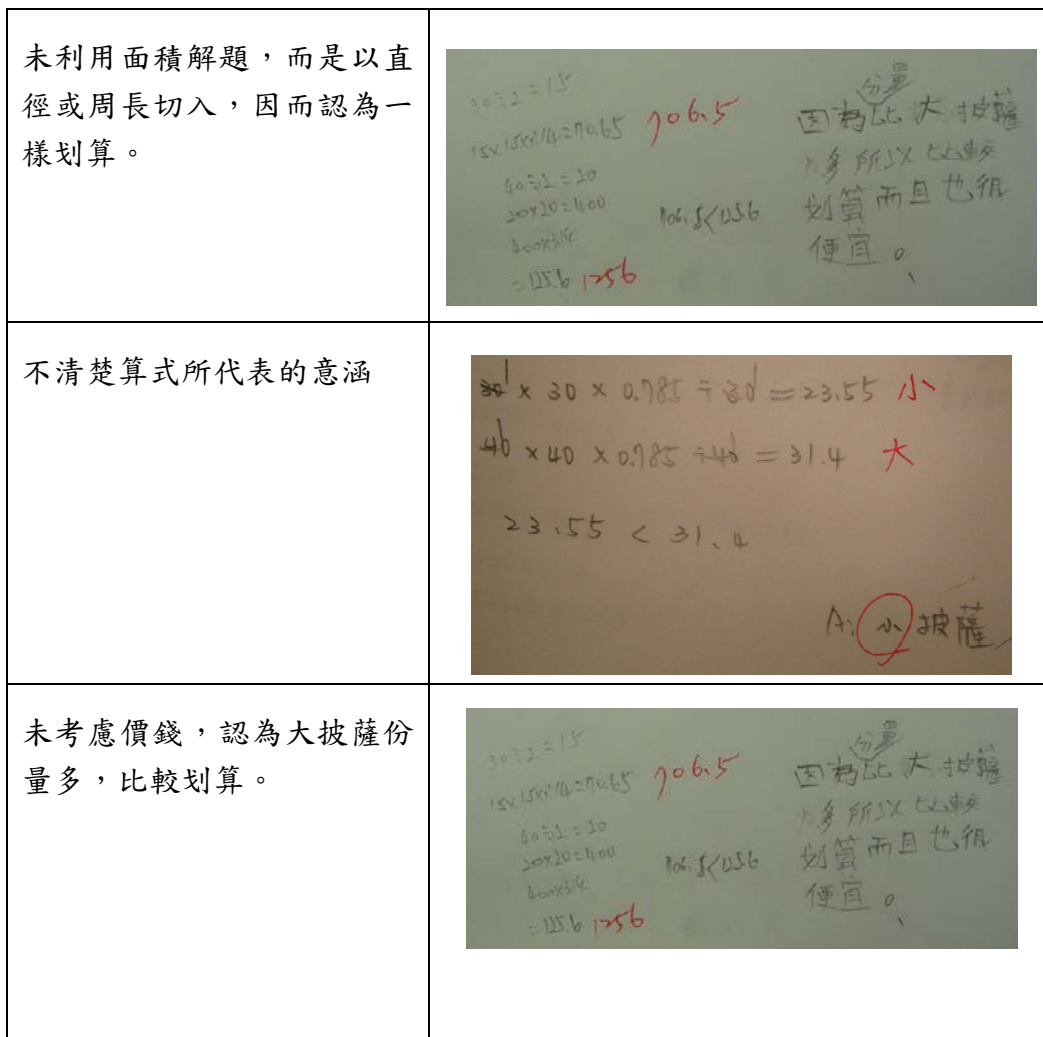 未利用面積解題，而是以直
徑或周長切入，因而認為一
樣划算。
30÷2=15
15×15×3.14=70.65 706.5
40÷2=20
20×20=400
400×3.14
=125.6 1256
706.5<1256
分量
因為比大披薩
多所以比較
划算而且也很
便宜。
不清楚算式所代表的意涵
30 × 30 × 0.785 ÷ 30 = 23.55 小
40 × 40 × 0.785 ÷ 40 = 31.4 大
23.55 < 31.4
A: 小披薩
未考慮價錢，認為大披薩份
量多，比較划算。
30÷2=15
15×15×3.14=70.65 706.5
40÷2=20
20×20=400
400×3.14
=125.6 1256
706.5<1256
分量
因為比大披薩
多所以比較
划算而且也很
便宜。